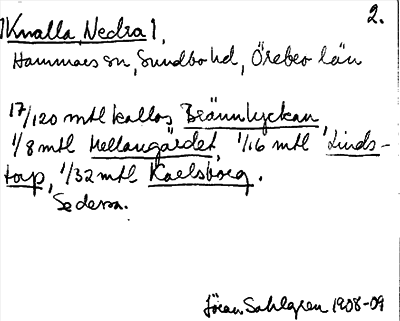 2.
Knalla, Nedra 1,
Hammars sn, Sundbo hd, Örebro län
17/120 mtl kallas Brännlyckan,
1/8 mtl Mellangärdet, 1/16 mtl Linds-
torp, 1/32 mtl Karlsborg.
Se dessa.
Jöran Sahlgren 1908-09